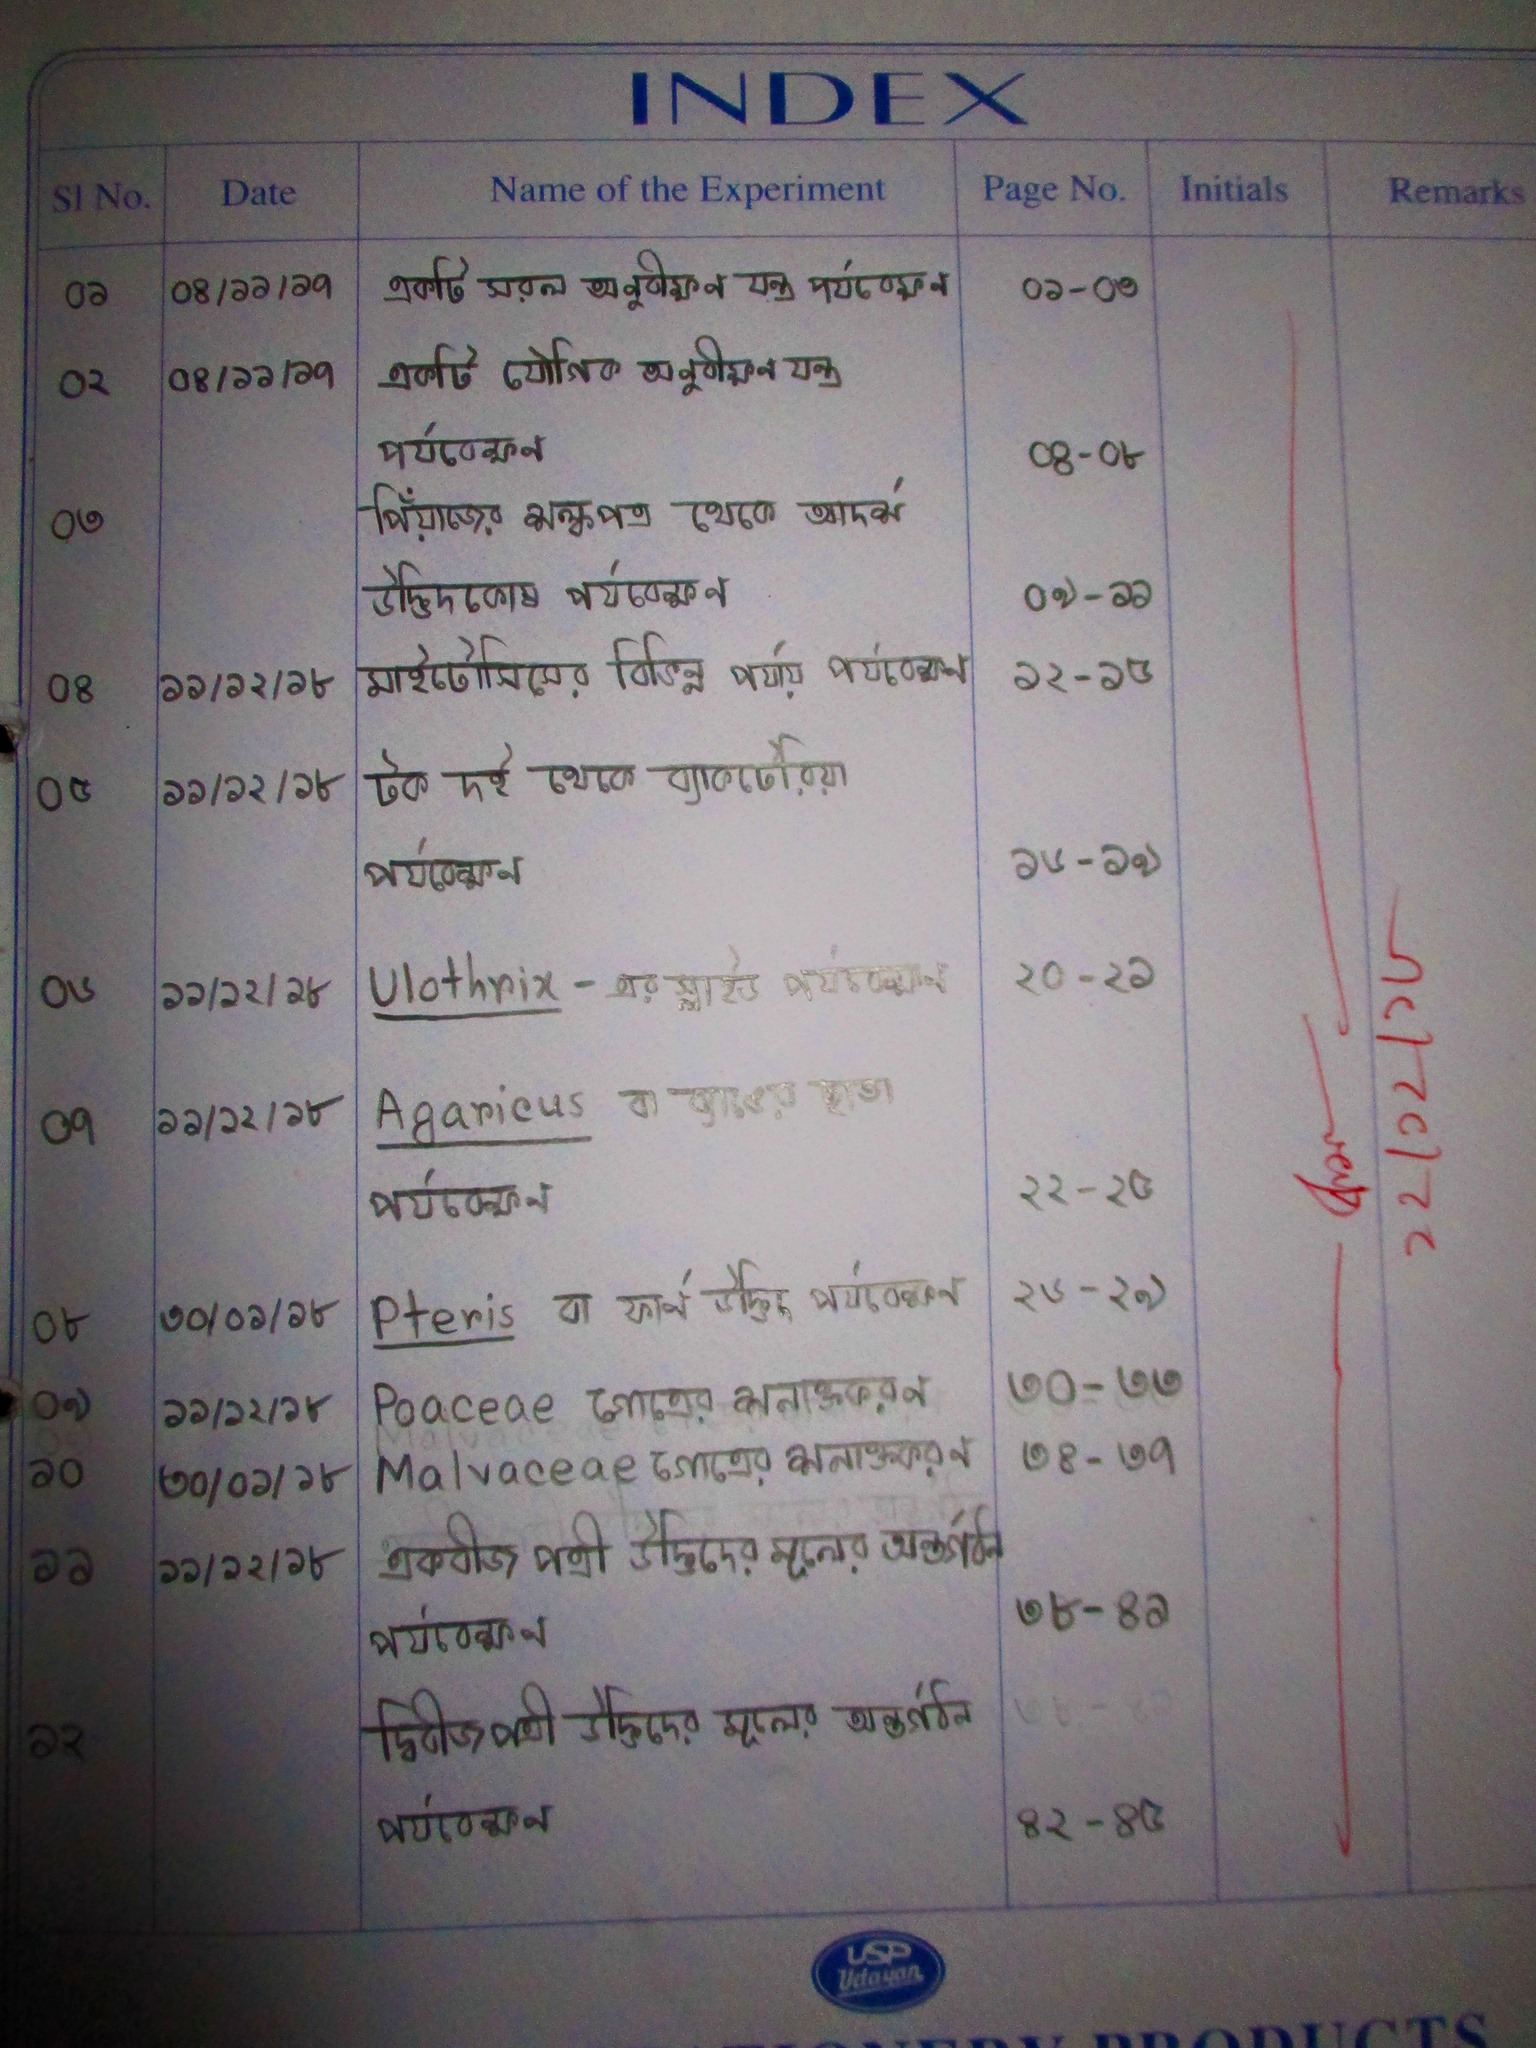 INDEX
Sl No. Date Name of the Experiment Page No. Initials Remarks
০১ ০৪/১১/১৭ একটি সরল অনুবীক্ষন যন্ত্র পর্যবেক্ষন ০১-০৩
০২ ০৪/১১/১৭ একটি যৌগিক অনুবীক্ষন যন্ত্র
পর্যবেক্ষন ০৪-০৮
০৩ পিঁয়াজের শল্কপত্র থেকে আদর্শ
উদ্ভিদকোষ পর্যবেক্ষন ০৯-১১
০৪ ১১/১২/১৮ মাইটোসিসের বিভিন্ন পর্যায় পর্যবেক্ষন ১২-১৫
০৫ ১১/১২/১৮ টক দই থেকে ব্যাকটেরিয়া
পর্যবেক্ষন ১৬-১৯
০৬ ১১/১২/১৮ Ulothrix - এর স্লাইড পর্যবেক্ষন ২০-২১
০৭ ১১/১২/১৮ Agaricus বা ব্যাঙের ছাতা
পর্যবেক্ষন ২২-২৫
০৮ ৩০/০১/১৮ Pteris বা ফার্ন উদ্ভিদ পর্যবেক্ষন ২৬-২৯
০৯ ১১/১২/১৮ Poaceae গোত্রের শনাক্তকরন ৩০-৩৩
১০ ৩০/০১/১৮ Malvaceae গোত্রের শনাক্তকরন ৩৪-৩৭
১১ ১১/১২/১৮ একবীজ পত্রী উদ্ভিদের মূলের অন্তর্গঠন
পর্যবেক্ষন ৩৮-৪১
১২ দ্বিবীজপত্রী উদ্ভিদের মূলের অন্তর্গঠন
পর্যবেক্ষন ৪২-৪৫
২২/০২/১৮
USP
Udayan
PRODUCTS